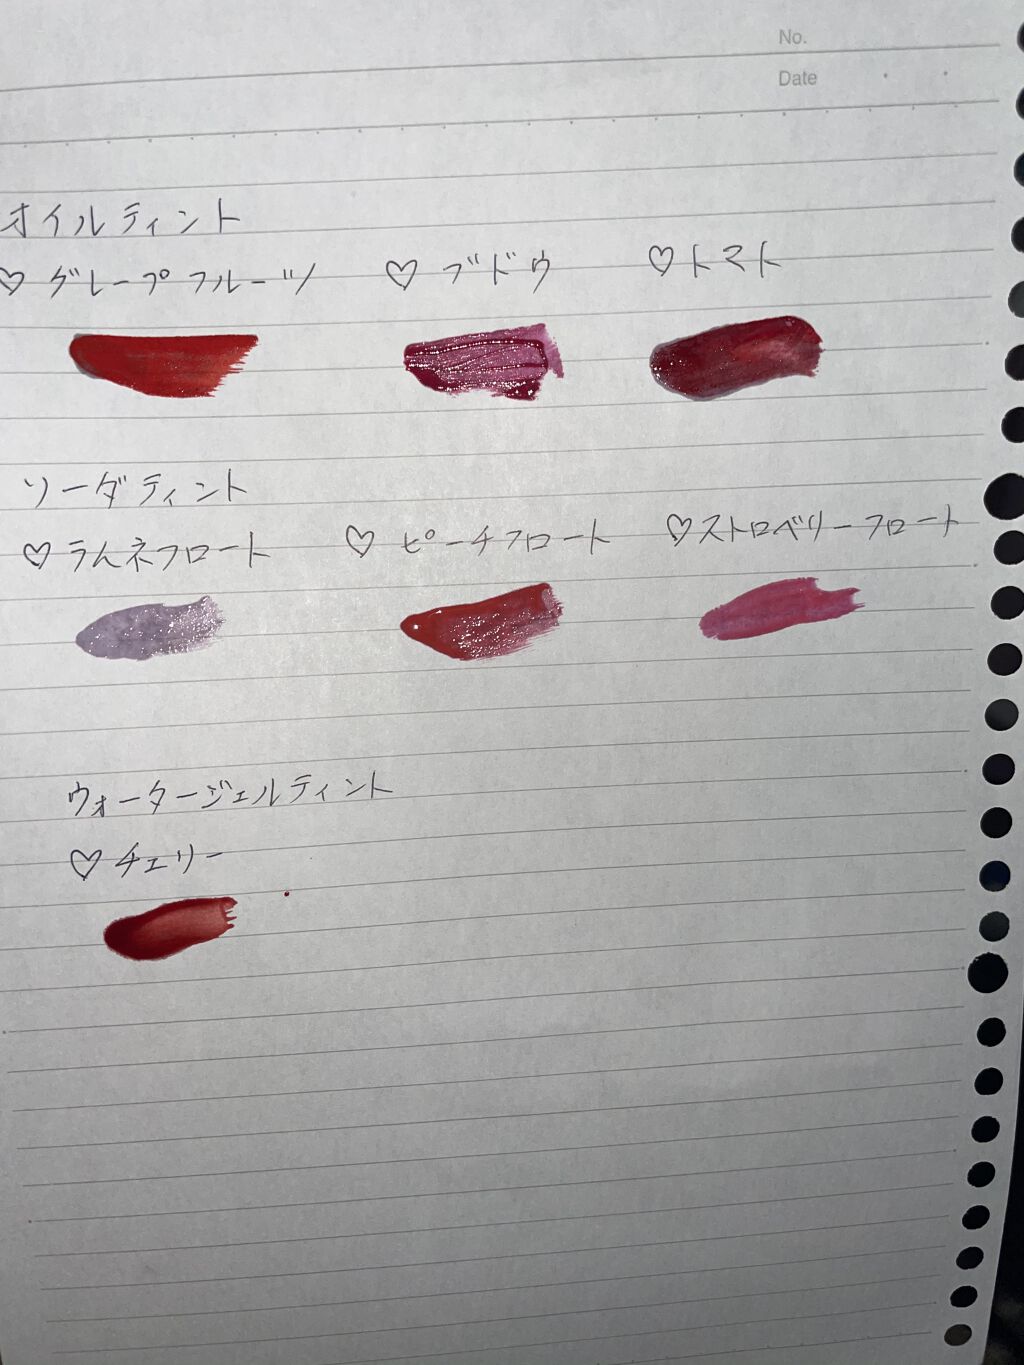 No.
Date
オイルティント
♡ グレープフルーツ ♡ ブドウ ♡ トマト
ソーダティント
♡ ラムネフロート ♡ ピーチフロート ♡ ストロベリーフロート
ウォータージェルティント
♡ チェリー